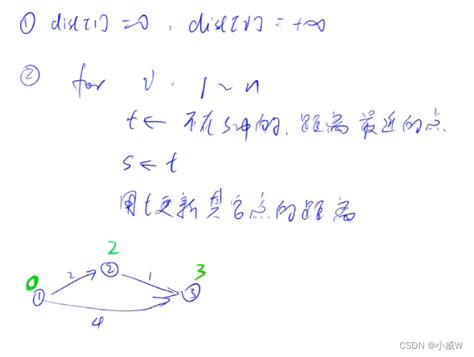 ① dist[1]=0, dist[i]=+∞
② for i: 1~n
t← 不在s中的,距离最近的点.
s←t
用t更新其它点的距离
2
0
3
2
②
1
①
③
4
CSDN @小威W